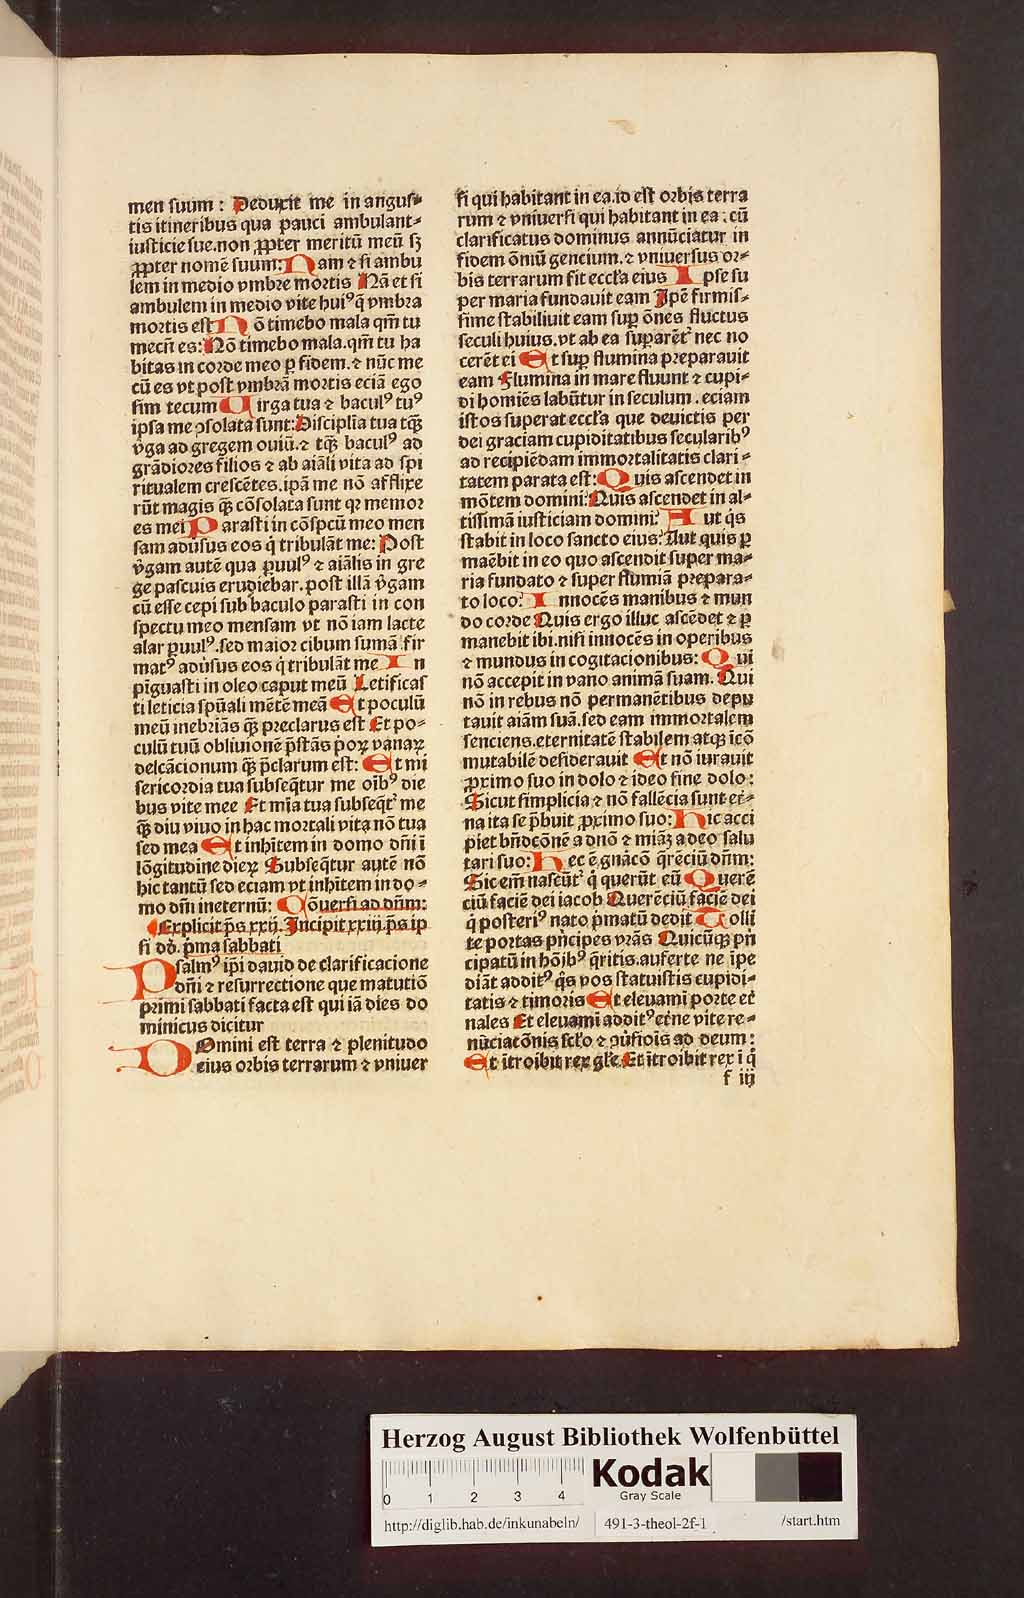 men suum : Deduxit me in angus⸗
tis itineribus qua pauci ambulant⸗
iusticie sue.non ꝓpter meritū meū sꝫ
ꝓpter nomē suum: Nam ⁊ si ambu
lem in medio vmbre mortis Nā et si
ambulem in medio vite huiꝰ q̄ vmbra
mortis est Nō timebo mala qm̄ tu
mecū es: Nō timebo mala.qm̄ tu ha
bitas in corde meo ꝑ fidem.⁊ nūc me
cū es vt post vmbrā mortis eciā ego
sim tecum Uirga tua ⁊ baculꝰ tuꝰ
ipsa me ꝯsolata sunt: Disciplīa tua tāqꝫ
v̄ga ad gregem ouiū.⁊ tāqꝫ baculꝰ ad
grādiores filios ⁊ ab aiāli vita ad spi
ritualem crescētes.ipā me nō afflixe
rūt magis qꝫ cōsolata sunt qꝛ memor
es mei Parasti in cōspcū meo men
sam aduersus eos q̄ tribulāt me: Post
v̄gam autē qua ꝑuulꝰ ⁊ aiālis in gre
ge pascuis erudiebar.post illā v̄gam
cū esse cepi sub baculo parasti in con
spectu meo mensam vt nō iam lacte
alar ꝑuulꝰ.sed maior cibum sumā.fir
matꝰ aduersus eos q̄ tribulāt me In
pīguasti in oleo caput meū Letificas
ti leticia spūali mētē meā Et poculū
meū inebriās qꝫ preclarus est Et po⸗
culū tuū obliuionē p̄stās poꝝ vanaꝝ
delcācionum qꝫ p̄clarum est: Et mi
sericordia tua subseq̄tur me oībꝰ die
bus vite mee Et mīa tua subseq̄t̄ me
qꝫ diu viuo in hac mortali vita nō tua
sed mea Et inhītem in domo dn̄i ī
lōgitudine dieꝝ Subseq̄tur autē nō
hic tantū sed eciam vt inhītem in do⸗
mo dn̄i ineternū: Cōuersi ad dn̄m:
Explicit p̄s xxij. Incipit xxiij.p̄s ip
si dd̄. p̄ma sabbati
Psalmꝰ ip̄i dauid de clarificacione
dn̄i ⁊ resurrectione que matutiō
primi sabbati facta est qui iā dies do
minicus dicitur
Domini est terra ⁊ plenitudo
eius orbis terrarum ⁊ vniuer
si qui habitant in ea.id est orbis terra
rum ⁊ vniuersi qui habitant in ea : cū
clarificatus dominus annūciatur in
fidem ōniū gencium.⁊ vniuersus or⸗
bis terrarum fit eccl̄a eius Ipse su
per maria fundauit eam Ipē firmis⸗
sime stabiliuit eam suꝑ ōnes fluctus
seculi huius.vt ab ea suꝑarēt̄ nec no
cerēt ei Et suꝑ flumina preparauit
eam Flumina in mare fluunt ⁊ cupi⸗
di homiēs labūtur in seculum.eciam
istos superat eccl̄a que deuictis per
dei graciam cupiditatibus secularibꝰ
ad recipiēdam immortalitatis clari⸗
tatem parata est: Quis ascendet in
mōtem domini: Quis ascendet in al⸗
tissimā iusticiam domini: Aut q̄s
stabit in loco sancto eius: Aut quis ꝑ
maēbit in eo quo ascendit super ma⸗
ria fundato ⁊ super flumiā prepara⸗
to loco: Innocēs manibus ⁊ mun
do corde Quis ergo illuc ascēdet ⁊ ꝑ
manebit ibi.nisi innocēs in operibus
⁊ mundus in cogitacionibus: Qui
nō accepit in vano animā suam. Qui
nō in rebus nō permanētibus depu
tauit aiām suā.sed eam immortalem
senciens.eternitatē stabilem atqꝫ icō
mutabilē desiderauit Et nō iurauit
ꝓximo suo in dolo ⁊ ideo sine dolo:
Sicut simplicia ⁊ nō fallēcia sunt et̄⸗
na ita se p̄buit ꝓximo suo: Hic acci
piet bn̄dcōnē a dnō ⁊ miāꝫ a deo salu
tari suo: Hec ē gnācō q̄reciū dn̄m:
Sic em̄ nascūt̄ q̄ querūt eū Querē
ciū faciē dei iacob Querēciū faciē dei
q̄ posteriꝰ nato p̄matū dedit Tolli
te portas pn̄cipes vr̄as Quicūqꝫ pn̄
cipatū in hoībꝰ q̄ritis.auferte ne īpe
diāt additꝰ q̄s vos statuistis cupidi⸗
tatis ⁊ timoris Et eleuami porte et̄
nales Et eleuami additꝰ et̄ne vite re⸗
nūciatōnis sclo ⁊ ꝯūsiōis ad deum:
Et ītroibit rex gl̄e Et ītroibit rex ī q̄
f iij
Herzog August Bibliothek Wolfenbüttel
0 1 2 3 4
Kodak
Gray Scale
http://diglib.hab.de/inkunabeln/ 491-3-theol-2f-1 /start.htm